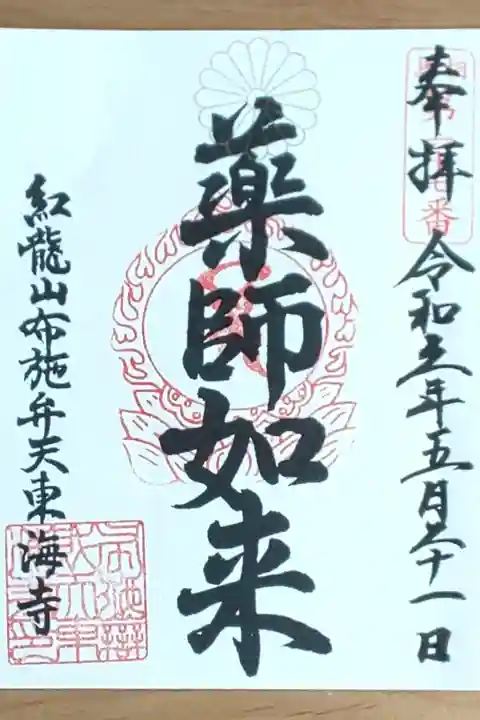 奉拝
令和元年五月三十一日
薬師如来
紅龍山布施弁天東海寺